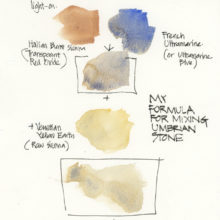 light-on.
Italian Burnt Sienna
(Transparent
Red Oxide)
French
Ultramarine
(or Ultramarine
Blue)
+
+ Venetian
Yellow Earth
(Raw Sienna)
MY
FORMULA
FOR MIXING
UMBRIAN
STONE